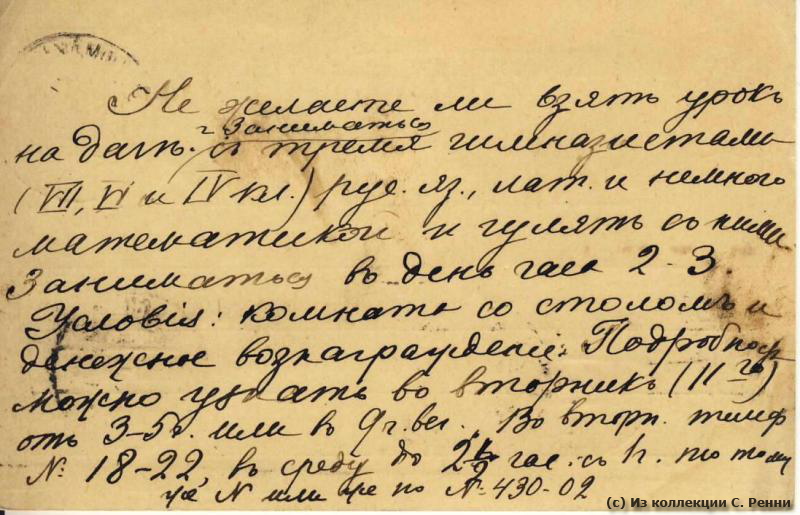 Не желаете ли взять урокъ
на дачѣ. заниматься
съ тремя гимназистами
(VII, VI и IV кл.) рус. яз., лат. и немного
математикой и гулять съ ними
Заниматься въ день часа 2-3.
Условія: комната со столомъ и
денежное вознагражденіе. Подробности
можно узнать во вторникъ (11го)
отъ 3-5ч. или въ 9 ч. веч. Во вторн. телеф
№ 18-22 въ среду до час. съ по тому
же № или же по № 430-02
(с) Из коллекции С. Ренни